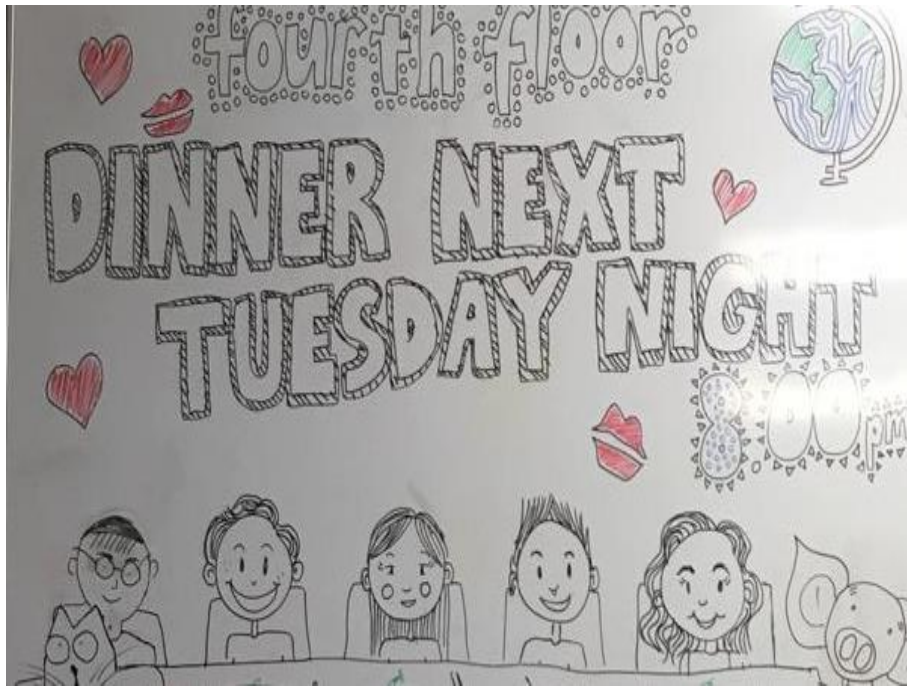 fourth floor
DINNER NEXT
TUESDAY NIGHT
8.00pm